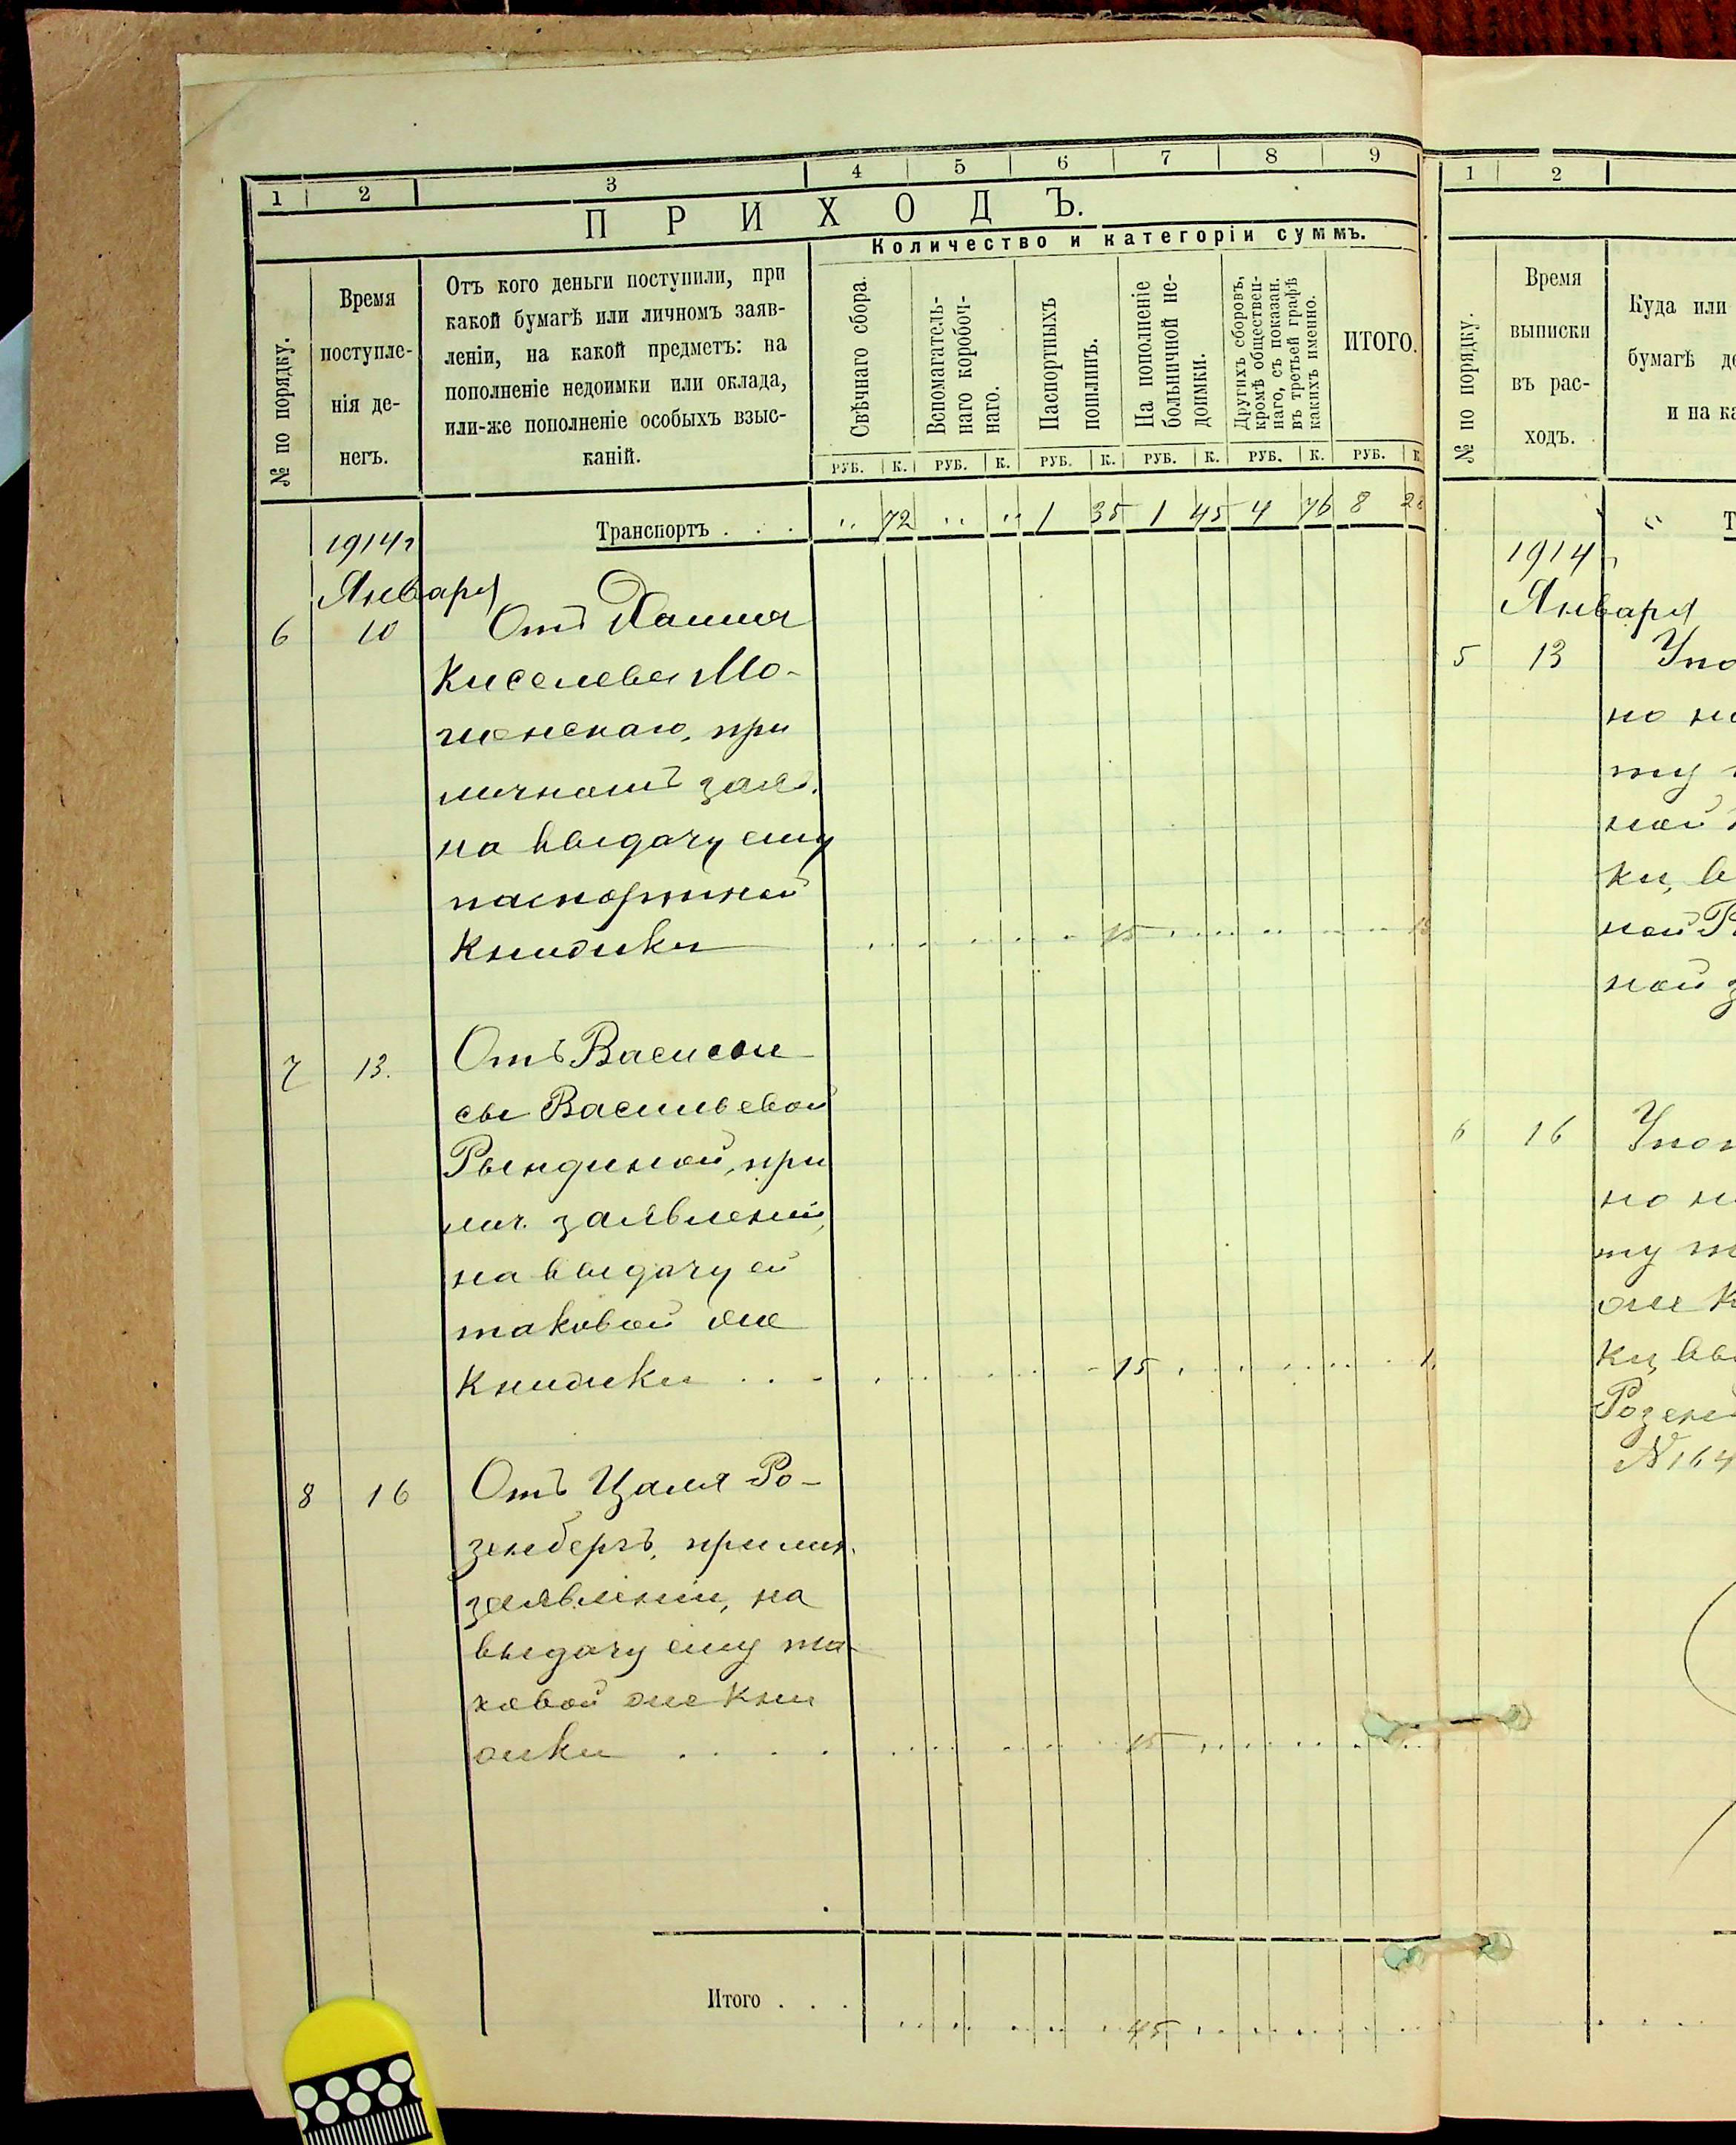 1 2 3 4 5 6 7 8 9
ПРИХОДЪ.
Количество и категоріи суммъ.
№ по порядку.
Время
поступле-
нія де-
негъ.
Отъ кого деньги поступили, при
какой бумагѣ или личномъ заяв-
леніи, на какой предметъ: на
пополненіе недоимки или оклада,
или-же пополненіе особыхъ взыс-
каній.
Свѣчнаго сбора.
Вспомагатель-
наго коробоч-
наго.
Паспортныхъ
пошлинъ.
На пополненіе
больничной не-
доимки.
Другихъ сборовъ,
кромѣ обществен-
наго, съ показан.
въ третьей графѣ
какихъ именно.
ИТОГО.
РУБ. К. РУБ. К. РУБ. К. РУБ. К. РУБ. К. РУБ. К.
Транспортъ . . . 72 1 35 1 45 4 76 8 28
1914 г
Января
6 10 Отъ
Киселева Мо-
при
личномъ заяв.
на выдачу ему
паспортной
книжки 15 15
7 13. Отъ
сы Васильевой
Рындиной, при
лич. заявленіи,
на выдачу ей
таковой же
книжки . . . 15
8 16 Отъ Цаля Ро-
зенбергъ, при лич.
заявленіи, на
выдачу ему та-
ковой же кни
жки . . . . 15
Итого . . . 45
1 2
№ по порядку.
Время
выписки
въ рас-
ходъ.
Куда или
бумагѣ
и на
1914 г
Января
5 13
но
ту
ной
ки, в
ной
ной з
6 16
но
ту
же к
ки, вы
Розен
№ 164